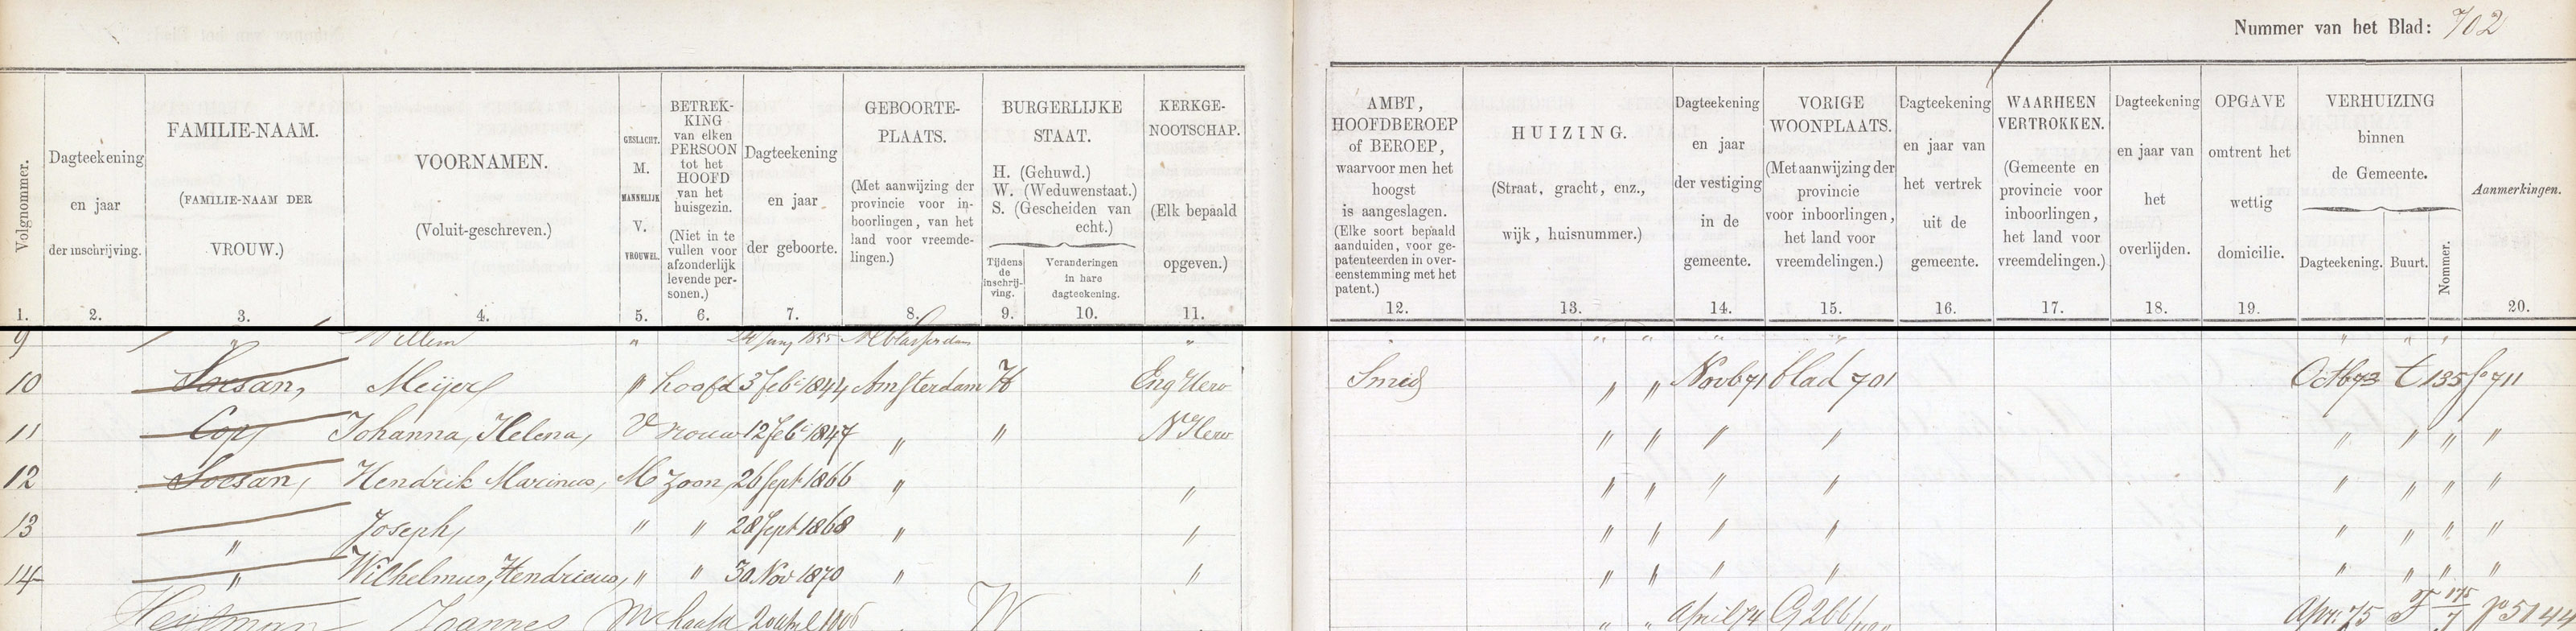 Nummer van het Blad: 702
Volgnommer.
1.
Dagteekening
en jaar
der inschrijving.
2.
FAMILIE-NAAM.
(FAMILIE-NAAM DER
VROUW.)
3.
VOORNAMEN.
(Voluit-geschreven.)
4.
GESLACHT.
M.
MANNELIJK
V.
VROUWEL.
5.
BETREK-
KING
van elken
PERSOON
tot het
HOOFD
van het
huisgezin.
(Niet in te
vullen voor
afzonderlijk
levende per-
sonen.)
6.
Dagteekening
en jaar
der geboorte.
7.
GEBOORTE-
PLAATS.
(Met aanwijzing der
provincie voor in-
boorlingen, van het
land voor vreemde-
lingen.)
8.
BURGERLIJKE
STAAT.
H. (Gehuwd.)
W. (Weduwenstaat.)
S. (Gescheiden van
echt.)
Tijdens
de
inschrij-
ving.
9.
Veranderingen
in hare
dagteekening.
10.
KERKGE-
NOOTSCHAP.
(Elk bepaald
opgeven.)
11.
AMBT,
HOOFDBEROEP
of BEROEP,
waarvoor men het
hoogst
is aangeslagen.
(Elke soort bepaald
aanduiden, voor ge-
patenteerden in over-
eenstemming met het
patent.)
12.
HUIZING.
(Straat, gracht, enz.,
wijk, huisnummer.)
13.
Dagteekening
en jaar
der vestiging
in de
gemeente.
14.
VORIGE
WOONPLAATS.
(Met aanwijzing der
provincie
voor inboorlingen,
het land voor
vreemdelingen.)
15.
Dagteekening
en jaar van
het vertrek
uit de
gemeente.
16.
WAARHEEN
VERTROKKEN.
(Gemeente en
provincie voor
inboorlingen,
het land voor
vreemdelingen.)
17.
Dagteekening
en jaar van
het
overlijden.
18.
OPGAVE
omtrent het
wettig
domicilie.
19.
VERHUIZING
binnen
de Gemeente.
Dagteekening.
Buurt.
Nommer.
Aanmerkingen.
20.
9 " Willem " 1855 "
10 Soesan, Meijer " hoofd 3 Feb 1844 Amsterdam H Eng Herv Smid " " Nov 71 blad 701 Octb 73 t 135 fo 711
11 Cop Johanna, Helena, V vrouw 12 Feb 1847 " " N Herv " " " " " " " "
12 Soesan, Hendrik Marinus, M zoon, 26 Sept 1866 " " " " " " " " " "
13 " Joseph, " " 28 Sept 1868 " " " " " " " " " "
14 " Wilhelmus, Hendricus, " " 30 Nov 1870 " " " " " " " " " "
Joannes M hoofd W " " April 74 G 266 Apr. 75 T 175/7